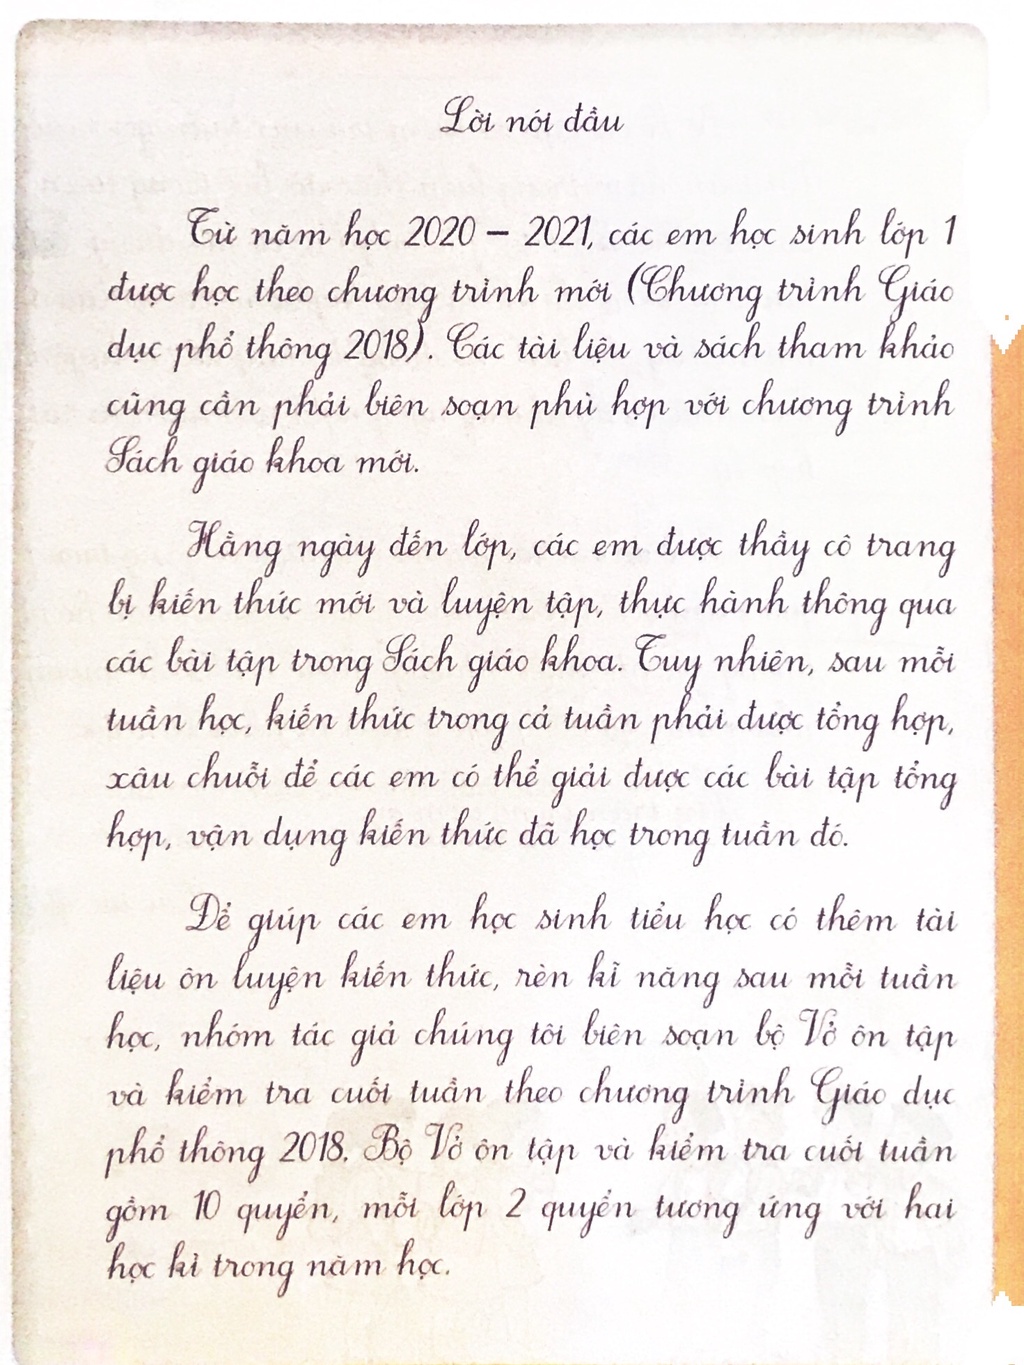 Lời nói đầu
Từ năm học 2020 – 2021, các em học sinh lớp 1
được học theo chương trình mới (Chương trình Giáo
dục phổ thông 2018). Các tài liệu và sách tham khảo
cũng cần phải biên soạn phù hợp với chương trình
Sách giáo khoa mới.
Hằng ngày đến lớp, các em được thầy cô trang
bị kiến thức mới và luyện tập, thực hành thông qua
các bài tập trong Sách giáo khoa. Tuy nhiên, sau mỗi
tuần học, kiến thức trong cả tuần phải được tổng hợp,
xâu chuỗi để các em có thể giải được các bài tập tổng
hợp, vận dụng kiến thức đã học trong tuần đó.
Để giúp các em học sinh tiểu học có thêm tài
liệu ôn luyện kiến thức, rèn kĩ năng sau mỗi tuần
học, nhóm tác giả chúng tôi biên soạn bộ Vở ôn tập
và kiểm tra cuối tuần theo chương trình Giáo dục
phổ thông 2018. Bộ Vở ôn tập và kiểm tra cuối tuần
gồm 10 quyển, mỗi lớp 2 quyển tương ứng với hai
học kì trong năm học.